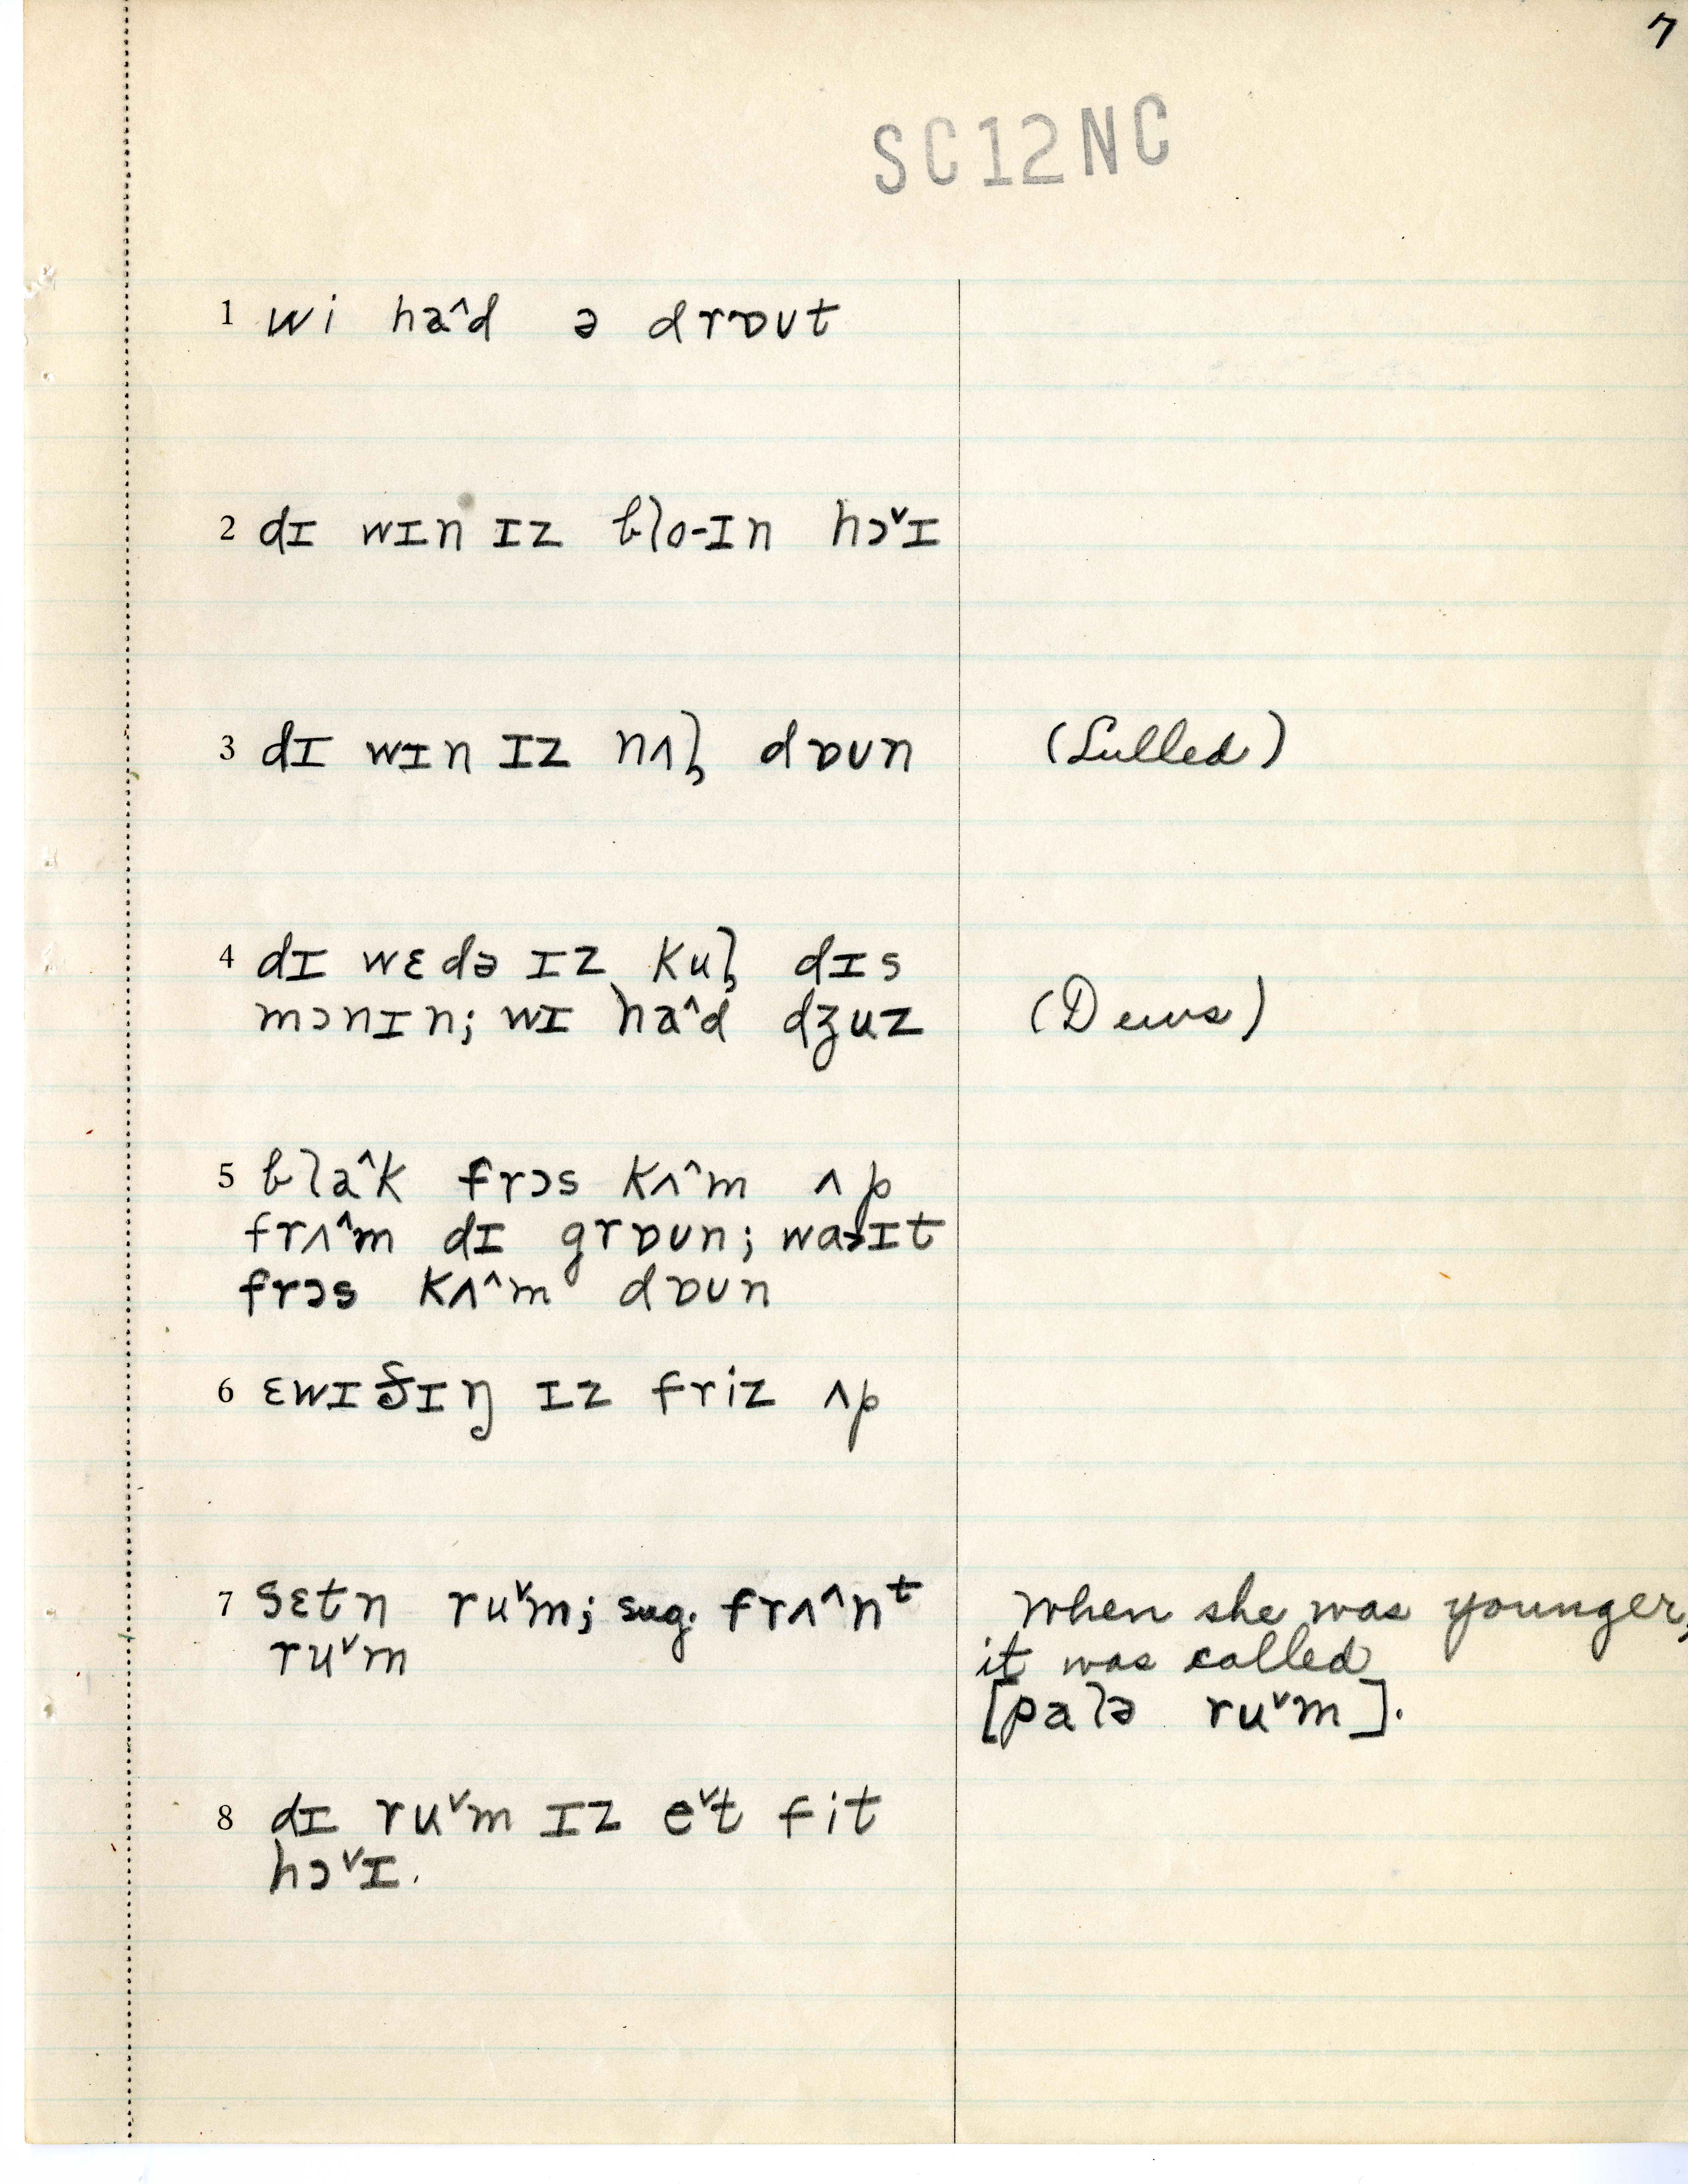 7
SC12NC
1 wi ha^d ə drɒʊt
2 dɪ wɪn ɪz blo-ɪn hɔˇɪ
3 dɪ wɪn ɪz nʌl̡ dɒʊn (Lulled)
4 dɪ wɛdə ɪz kul̡ dɪs
mɔnɪn; wɪ ha^d dʒuz (Dews)
5 bla^k frɔs kʌ^m ʌp
frʌ^m dɪ grɒʊn; waɪt
frɔs kʌ^m dɒʊn
6 ɛwɪðɪŋ ɪz friz ʌp
7 sɛtn ruˇm; sug. frʌ^nᵗ When she was younger,
ruˇm it was called
[palə ruˇm].
8 dɪ ruˇm ɪz eˇt fit
hɔˇɪ.